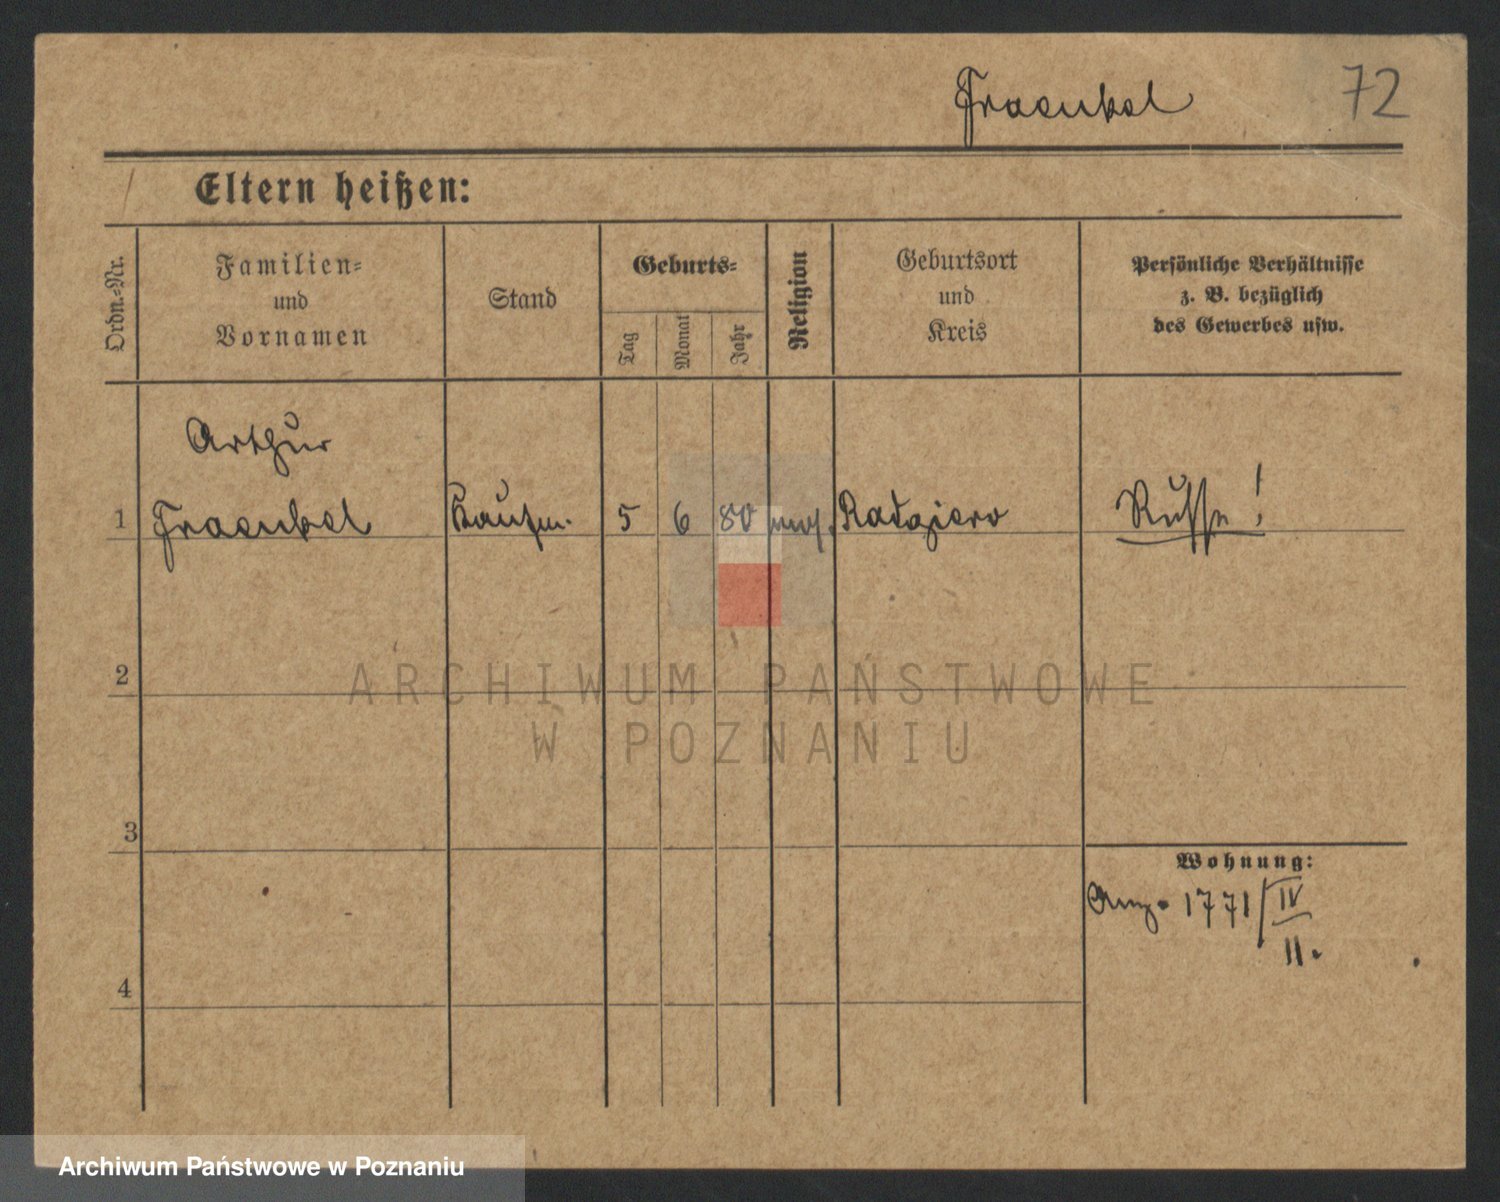 Fraenkel
72
Eltern heißen:
Ordn.-Nr.
Familien-
und
Vornamen
Stand
Geburts-
Tag
Monat
Jahr
Religion
Geburtsort
und
Kreis
Persönliche Verhältnisse
z. B. bezüglich
des Gewerbes usw.
Arthur
1 Fraenkel Kaufm. 5 6 80 mos. Radziewo Russe!
2
3
Wohnung:
1771/IV
II.
4
ARCHIWUM PAŃSTWOWE
W POZNANIU
Archiwum Państwowe w Poznaniu